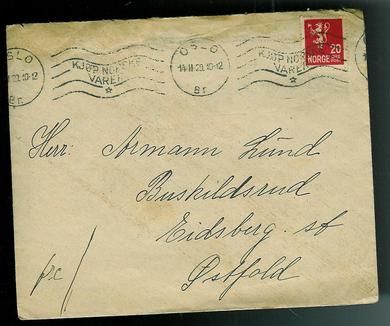 OSLO
14·II·29.10-12
Br.
KJØP NORSKE
VARER
OSLO
14·II·29.10-12
Br.
KJØP NORSKE
VARER
20
NORGE
Herr. Armann Lund
Buskildsrud
Eidsberg. st
Østfold